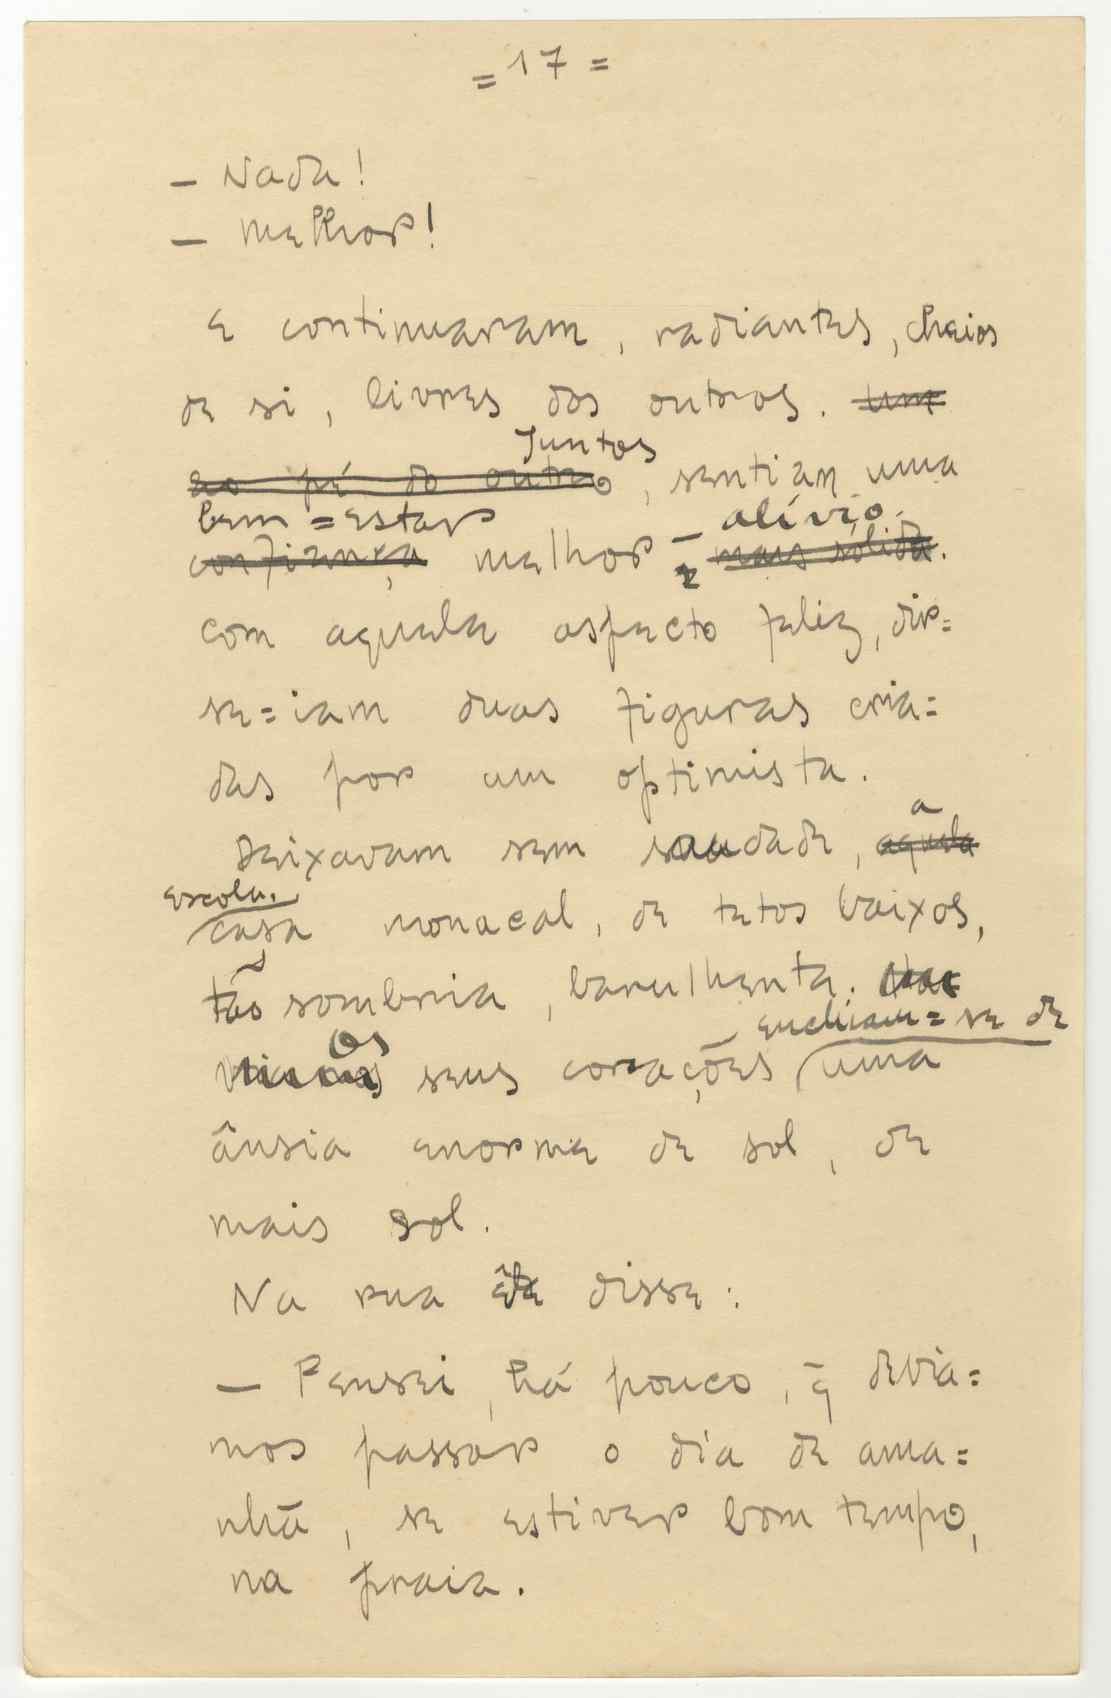 = 17 =
— Nada!
— Melhor!
E continuaram, radiantes, cheios
de si, livres dos outros. Um
Juntos
ao pé do outro, sentiam uma
bem=estar – alívio.
confiança melhor e mais sólida.
com aquele aspecto feliz, dir=
se=iam duas figuras cria=
das por um optimista.
Deixavam sem saudade, aquela
a
escola.
casa monacal, de tetos baixos,
tão sombria, barulhenta.
enchiam=se de
Os
seus corações uma
ânsia enorme de sol, de
mais sol.
Na rua êle disse:
— Pensei, há pouco, q̃ devía=
mos passar o dia de ama=
nhã, se estiver bom tempo,
na praia.